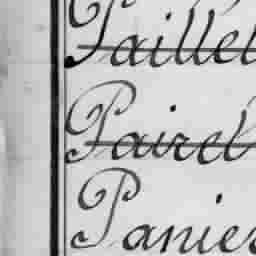 Paillet
Pairel
Panier